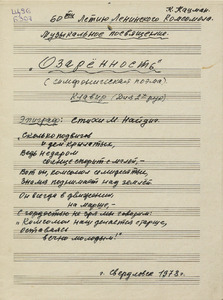 К. Кацман.
60ой Летию Ленинского Комсомола.
Музыкальное посвящение.
"Озарённость"
(симфоническая поэма)
Клавир (для 2х рук)
Эпиграф: Стихи М. Найдич.
"Сколько подвигов
и дел крылатых,
Ведь недаром
солнце спорит с мглой,-
Вот он, комсомол семидесятых,
Знамя поднимает над землёй
Он всегда в движении,
на марше,-
С гордостью не зря мы говорим:
"Комсомол наш делается старше,
Оставаясь
вечно молодым!"
г. Свердловск 1978 г.